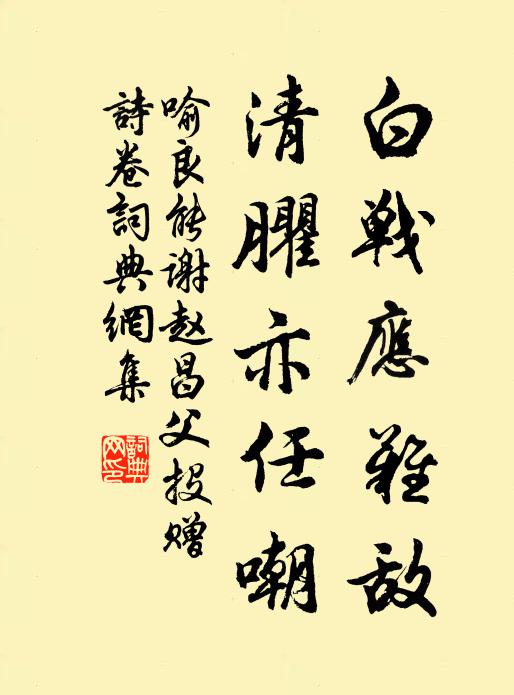 白戰應難敵
清臞亦任嘲
喻良能谢赵昌父投赠
詩卷詞典網集
詞典
网印